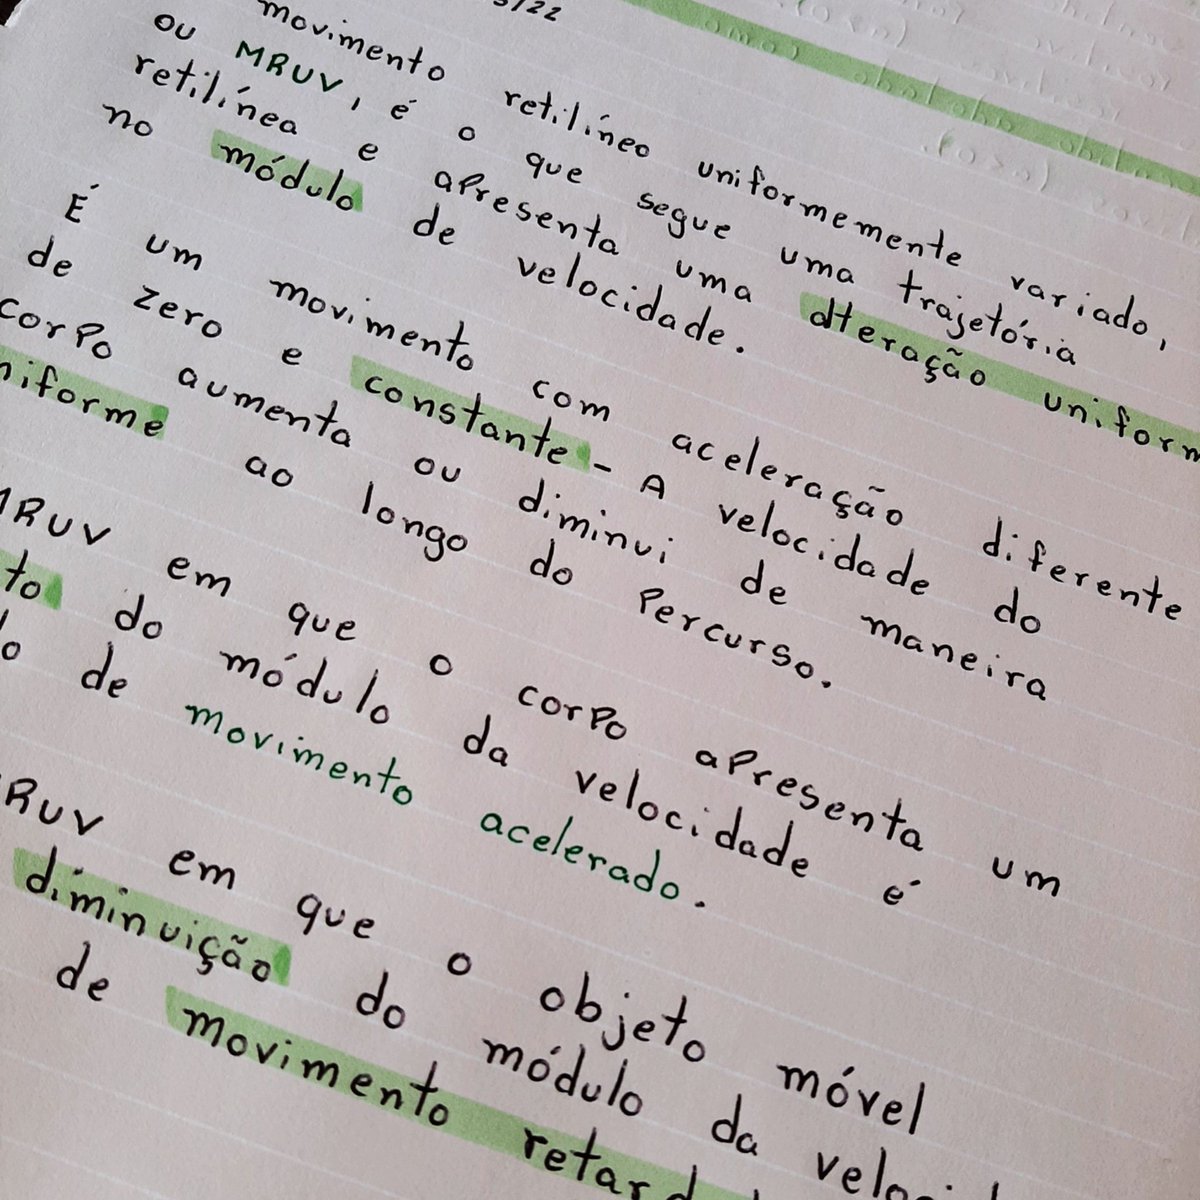 3/22
movimento retilíneo uniformemente variado,
ou MRUV, é o que segue uma trajetória
retilínea e apresenta uma alteração uniform
no módulo de velocidade.
É um movimento com aceleração diferente
de zero e constante - A velocidade do
corpo aumenta ou diminui de maneira
niforme ao longo do percurso.
MRUV em que o corpo apresenta um
to do módulo da velocidade é
o de movimento acelerado.
RUV em que o objeto móvel
diminuição do módulo da veloci
de movimento retard